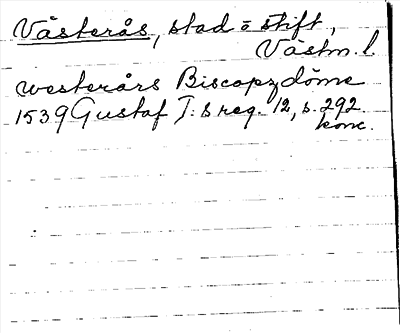 Västerås, stad o stift,
Västm. l.
westerårs Biscopzdöme
1539 Gustaf I:s reg. 12, s. 292.
konc.